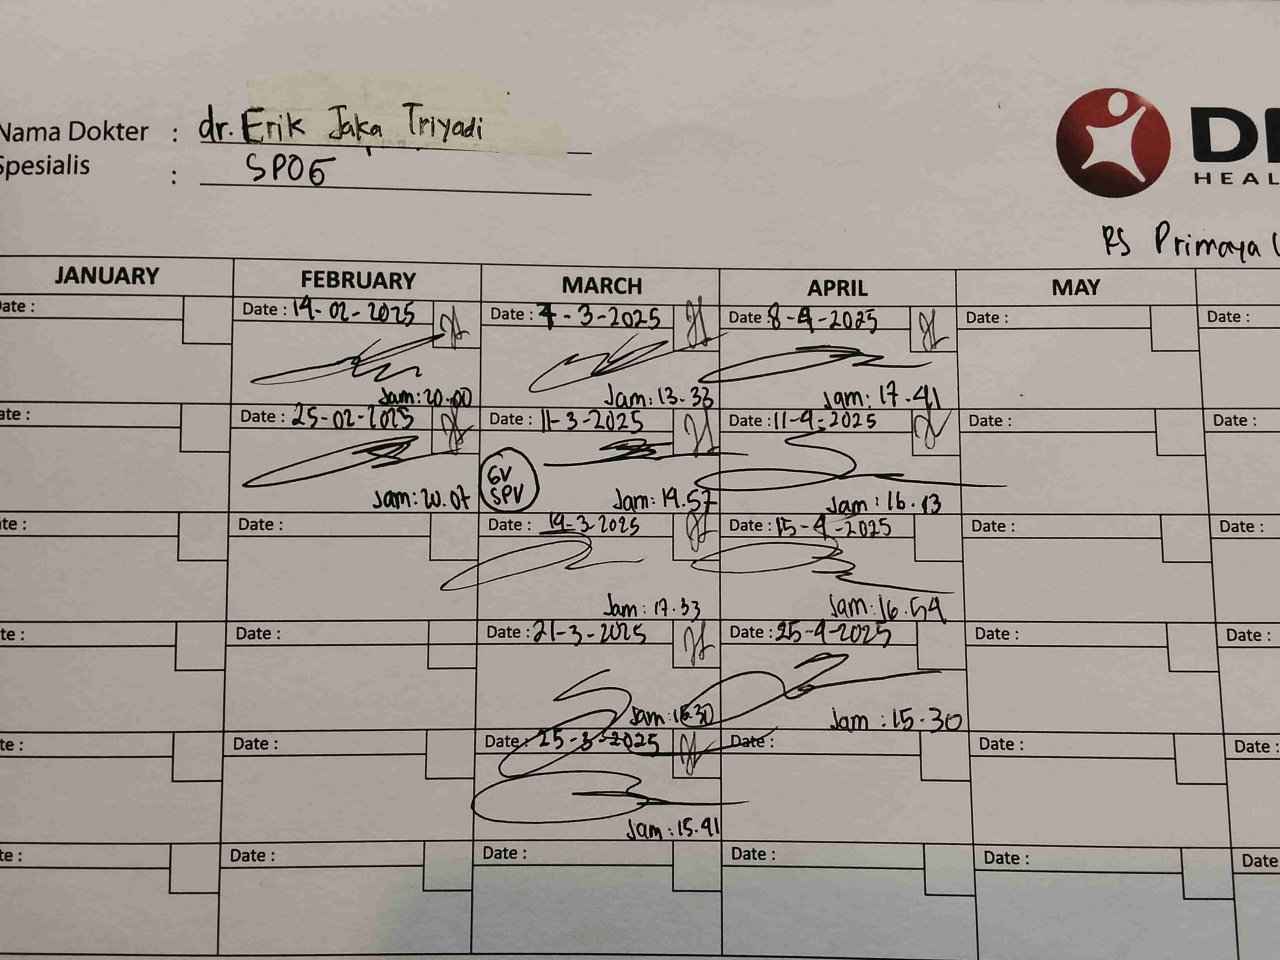 Nama Dokter : dr. Erik Jaka Triyadi
Spesialis : SPOG
HEAL
RS Primaya
JANUARY FEBRUARY MARCH APRIL MAY
Date : Date : 14-02-2025 Date : 7-3-2025 Date : 8-4-2025 Date : Date :
Jam: 20.00 Jam: 13.33 Jam: 17.41
Date : Date : 25-02-2025 Date : 11-3-2025 Date : 11-4-2025 Date : Date :
GV
SPV
Jam: 20.07 Jam: 19.57 Jam: 16.13
Date : Date : Date : 14-3-2025 Date : 15-4-2025 Date : Date :
Jam: 17.33 Jam: 16.54
Date : Date : Date : 21-3-2025 Date : 25-4-2025 Date : Date :
Jam: 16.30 Jam : 15.30
Date : Date : Date : 25-3-2025 Date : Date : Date :
Jam : 15.41
Date : Date : Date : Date : Date : Date